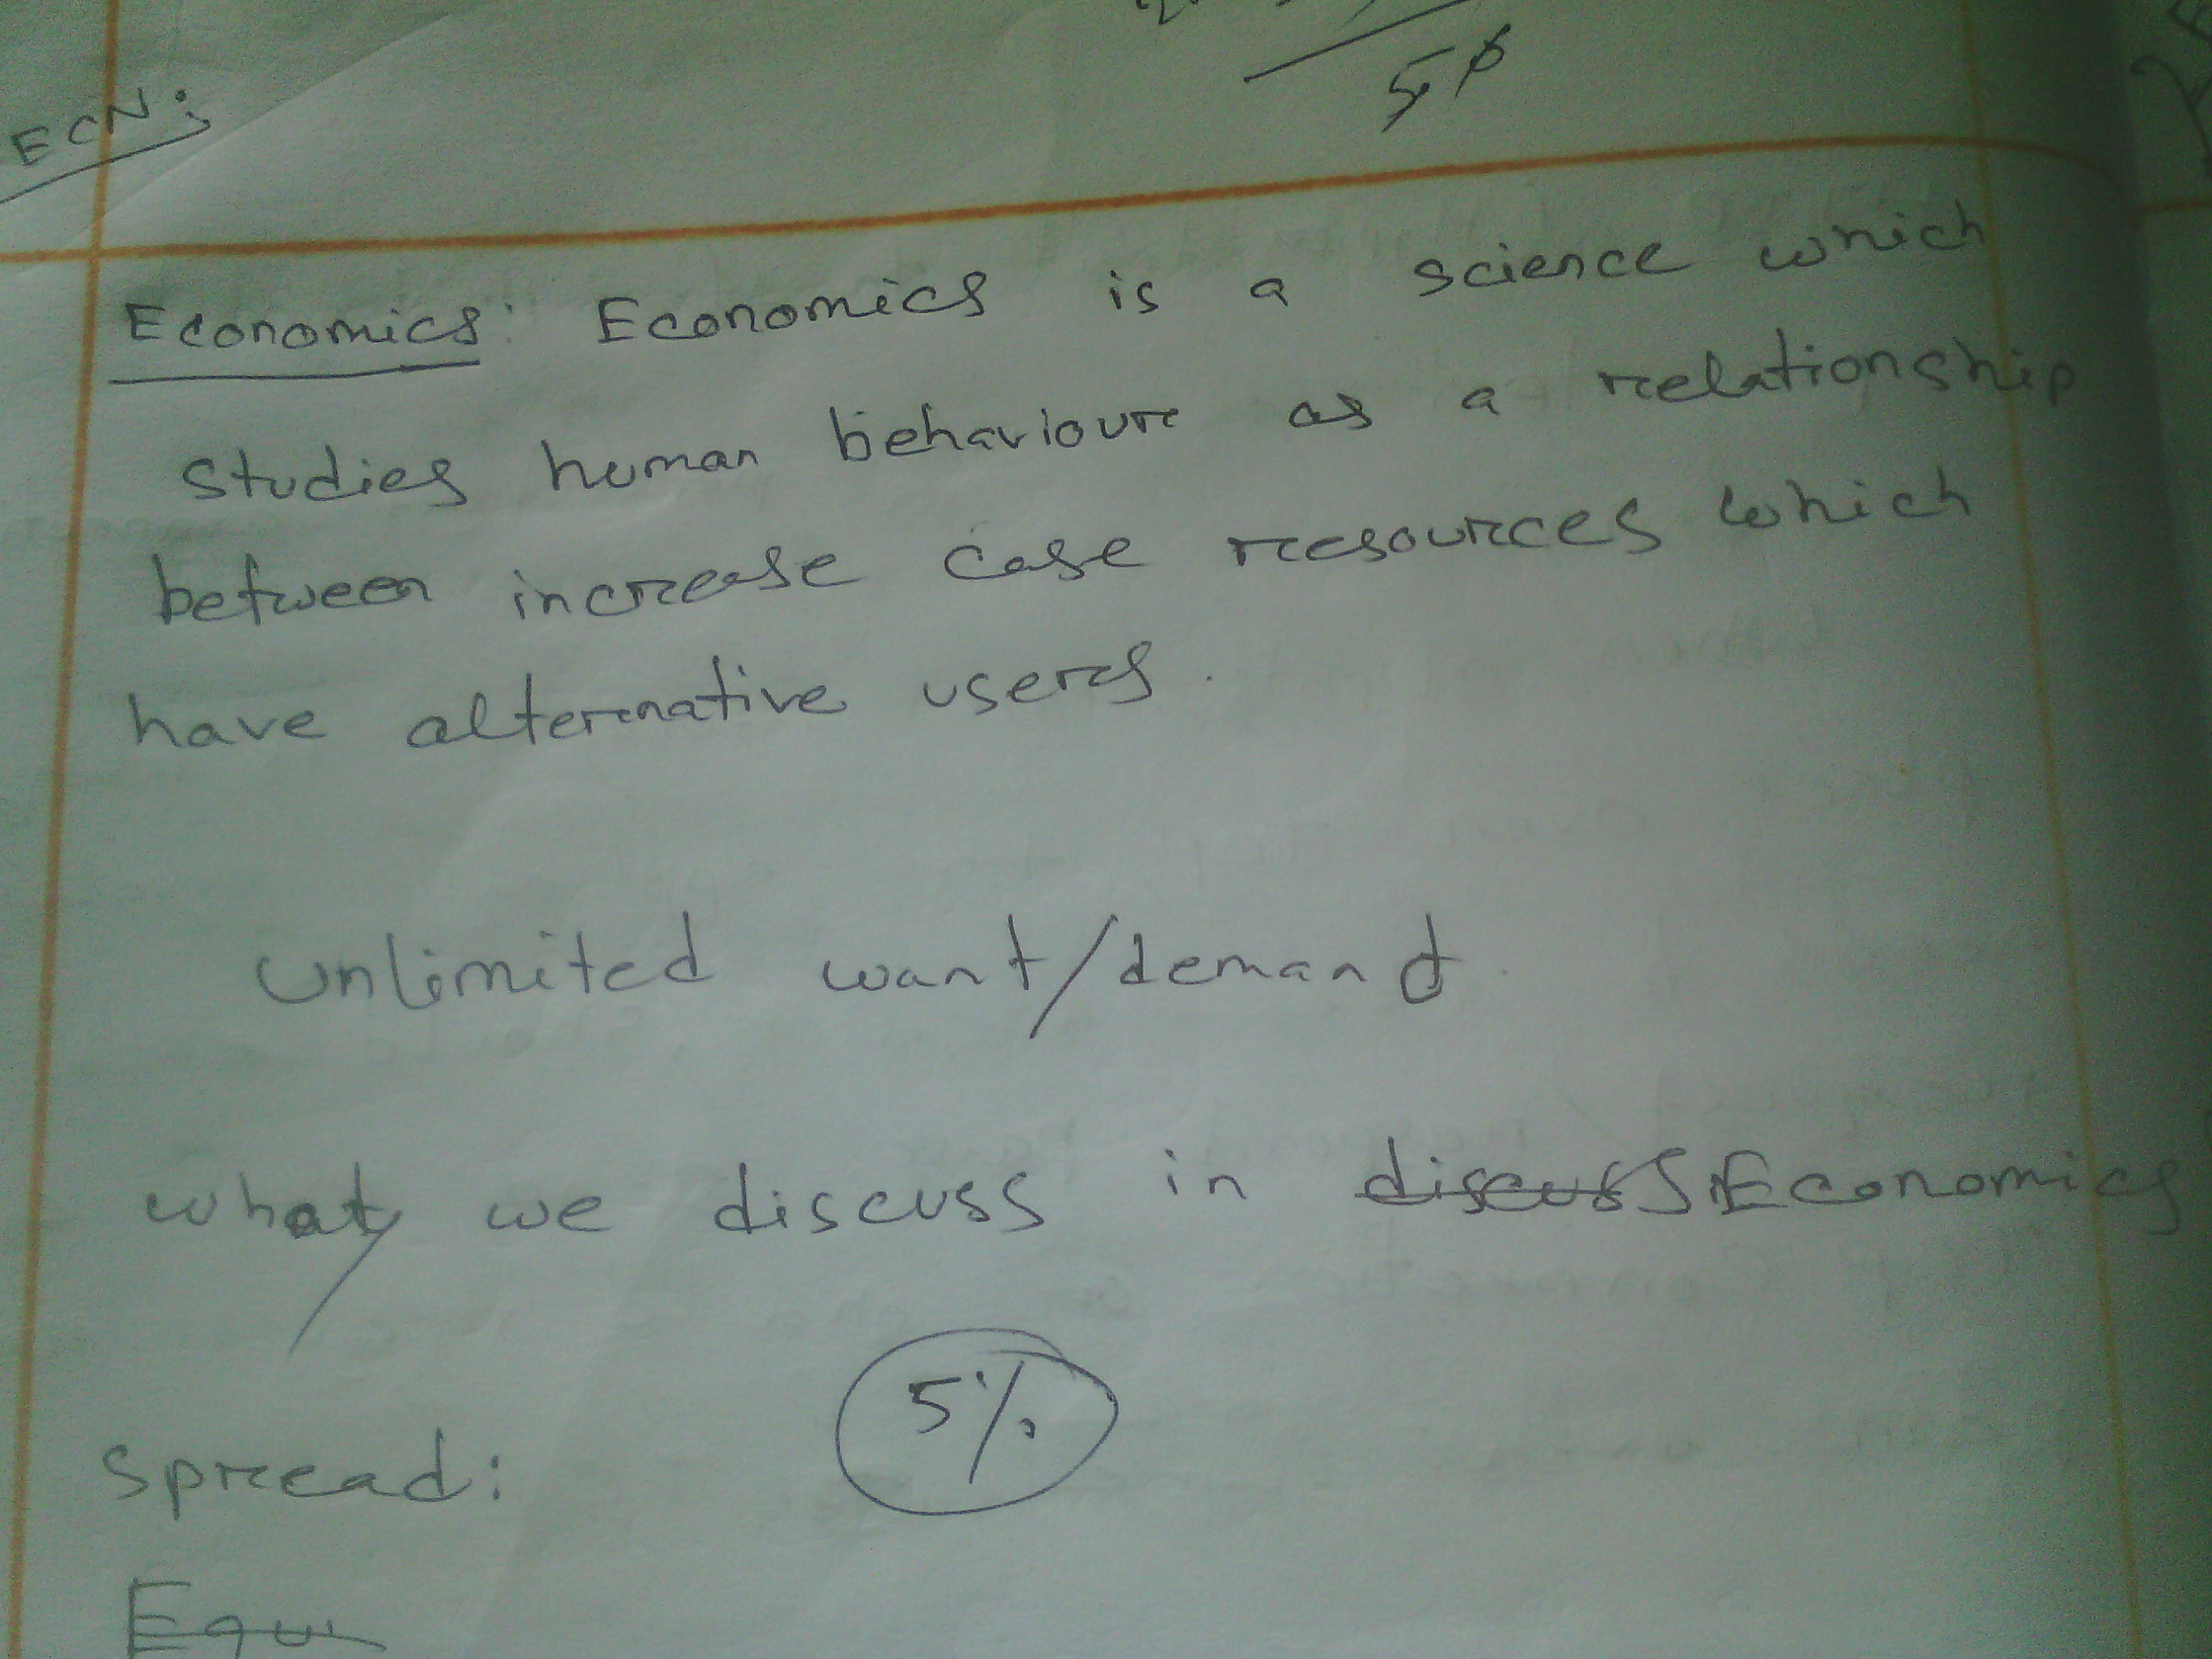 ECN:
Economics: Economics is a science which
studies human behaviour as a relationship
between increase case resources which
have alternative users.
unlimited want/demand.
what we discuss in discuss Economics
5%
spread:
Equ